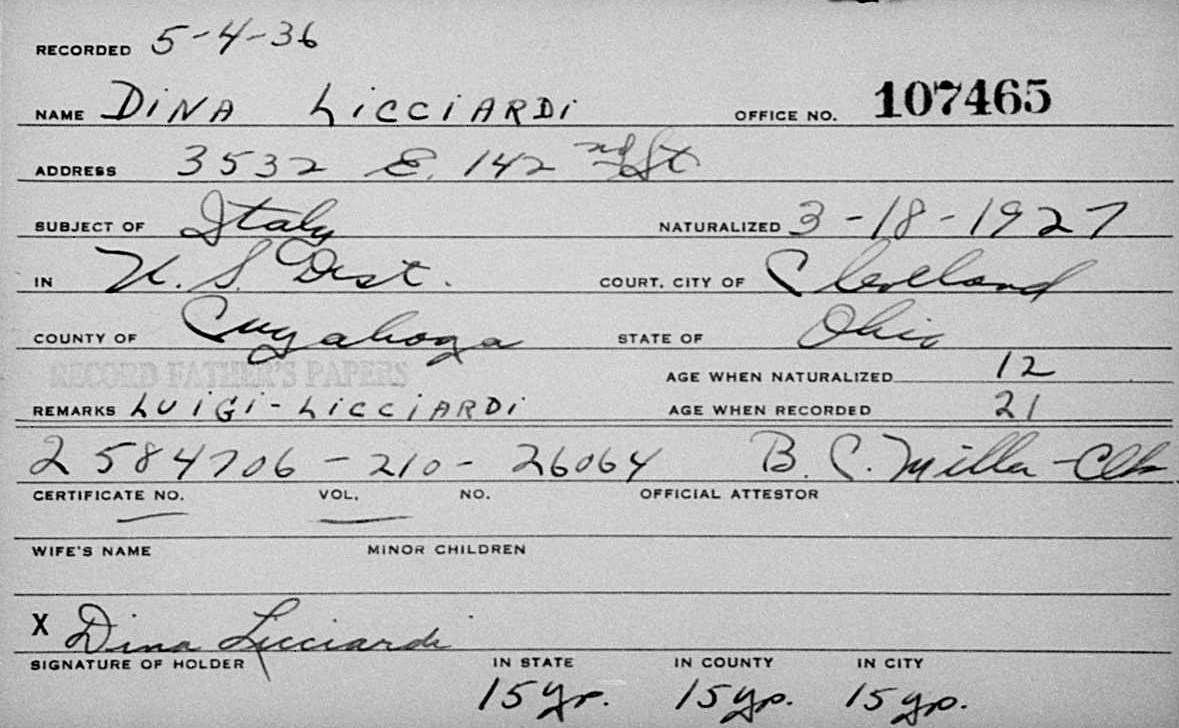 RECORDED 5-4-36
NAME DiNA LiCCiARDi OFFICE NO. 107465
ADDRESS 3532 E. 142 nd St
SUBJECT OF Italy NATURALIZED 3-18-1927
IN U.S. Dist. COURT, CITY OF Cleveland
COUNTY OF Cuyahoga STATE OF Ohio
RECORD FATHER'S PAPERS AGE WHEN NATURALIZED 12
REMARKS LUiGi-LiCCiARDi AGE WHEN RECORDED 21
2584706 - 210 - 26064 B. C. Miller - Clk
CERTIFICATE NO. VOL. NO. OFFICIAL ATTESTOR
WIFE'S NAME MINOR CHILDREN
X Dina Licciardi
SIGNATURE OF HOLDER IN STATE IN COUNTY IN CITY
15 yr. 15 yr. 15 yr.